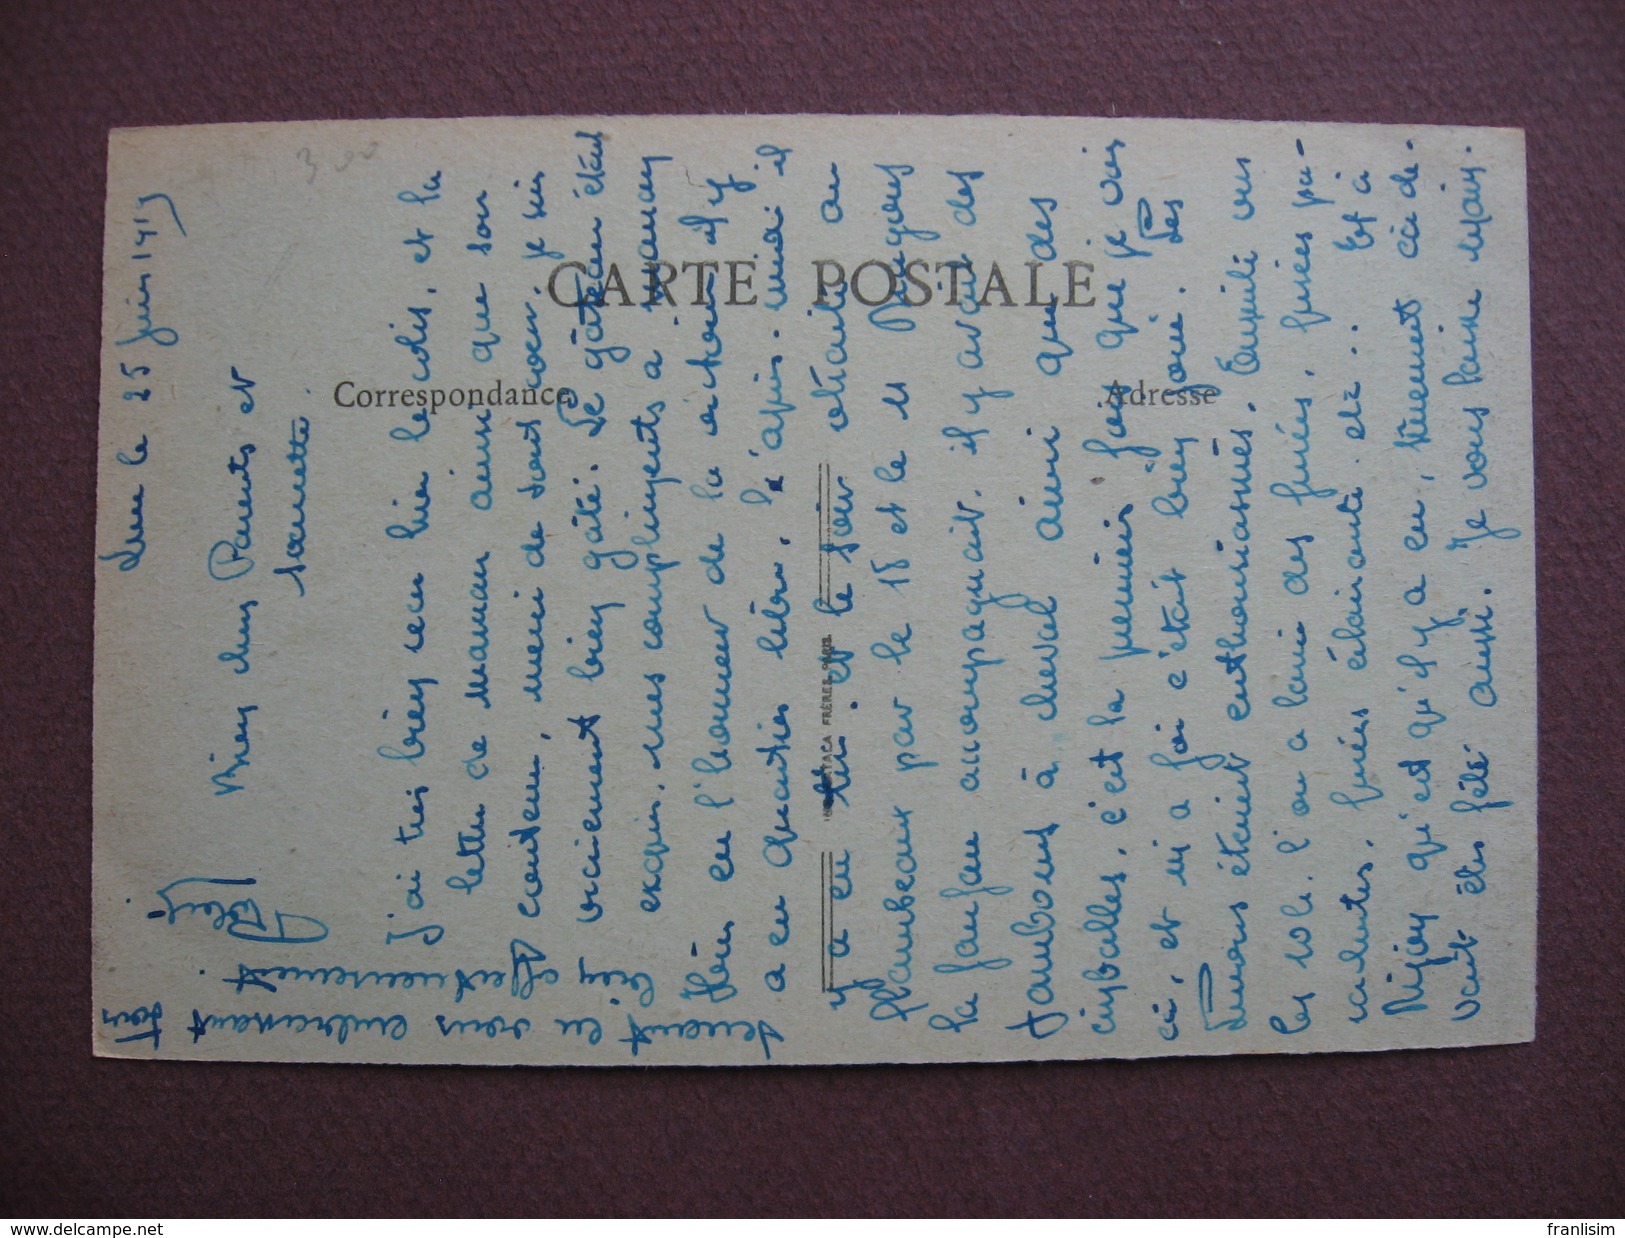 le 25 Juin 1919
Mes chers Parents et
sœurette.
J'ai très bien reçu hier le colis, et la
lettre de Maman ainsi que son
contenu, merci de tout cœur, je suis
vraiment bien gâté. Le gâteau était
exquis, mes compliments à Maman
Hier en l'honneur de la victoire il y
a eu quartier libre, l'après-midi il
y a eu et le soir retraite au
flambeaux par le 18 et le 11 Dragons
la fanfare accompagnait, il y avait des
tambours à cheval ainsi que des
cimballes, c'est la première fois que je vois
ça, et ma foi c'était bien joué. Les
étaient enthousiasmés. Ensuite vers
les 10h. l'on a lancé des fusées, fusées pa-
rachutes, fusées éclairantes etc... Et à
Dijon qu'est qu'il y a eu, sûrement ça de-
vait être fêté aussi. Je vous laisse Mais.
tenant en vous embrassant
bien affectueusement
tous
CARTE POSTALE
Correspondance
Adresse
FRÈRES PARIS
3 00
www.delcampe.net
franlisim